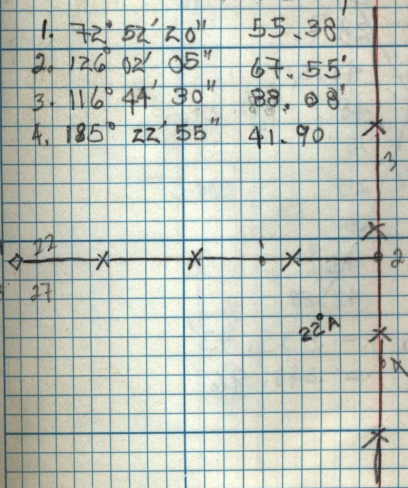 1. 72° 52' 20" 55.38'
2. 126° 02' 05" 67.55'
3. 116° 44' 30" 88.08'
4. 185° 22' 55" 41.90
3
22
2
27
22°A